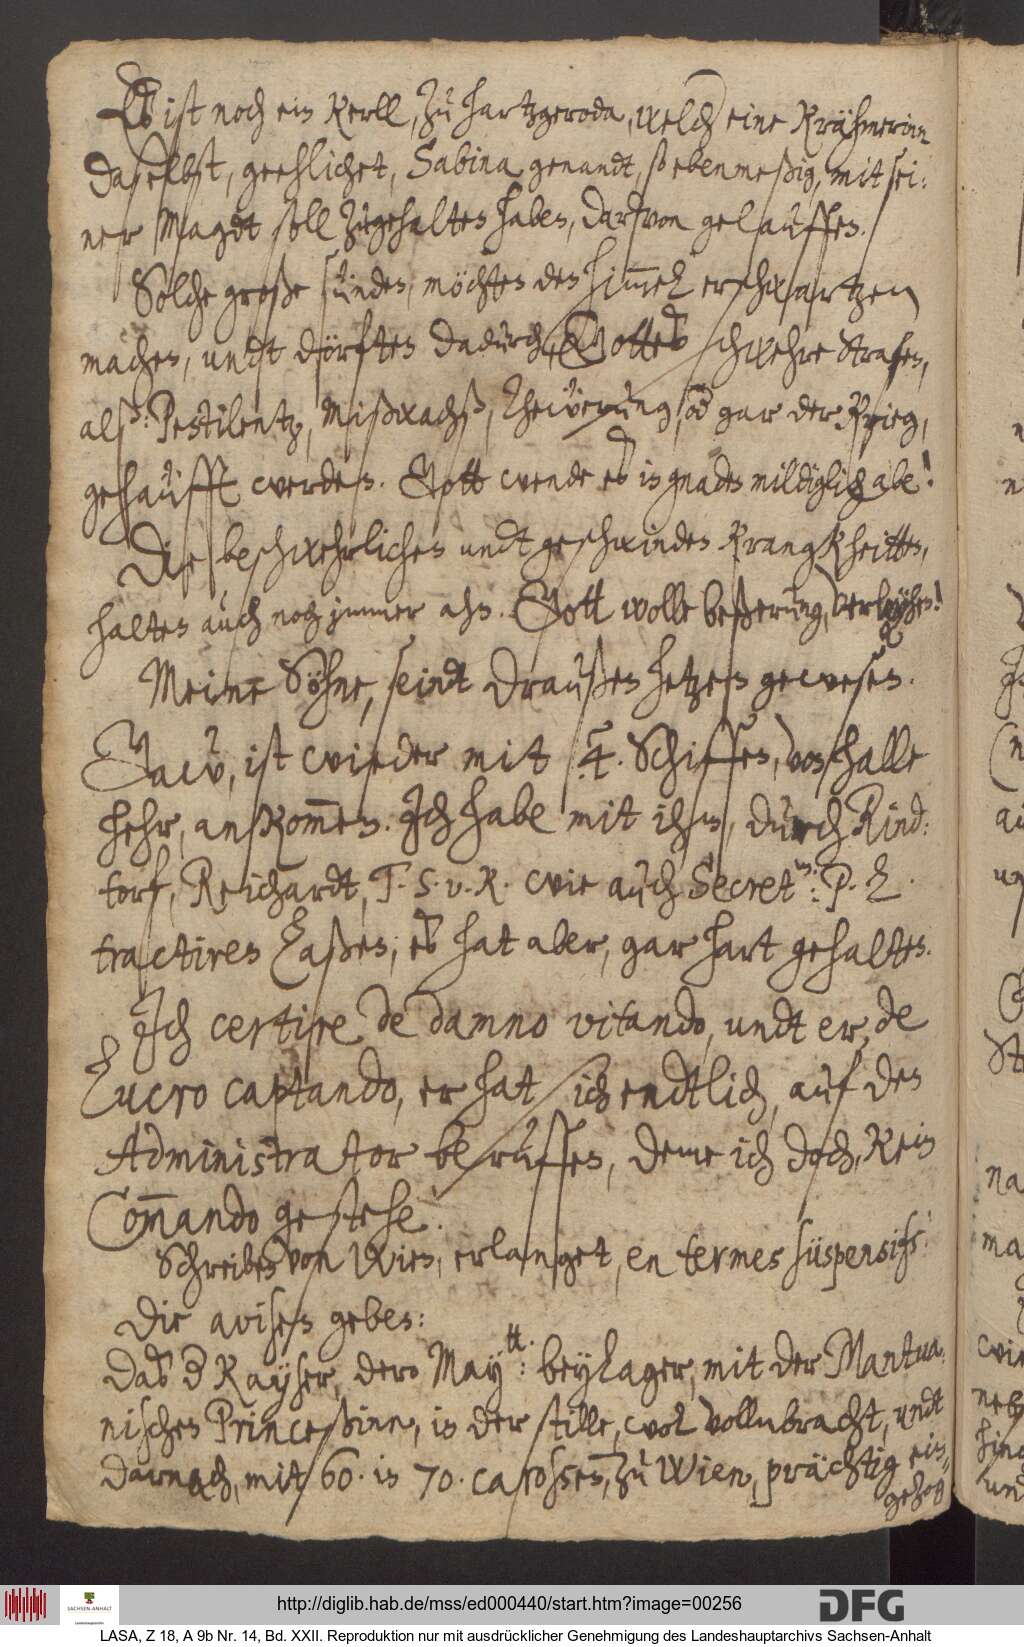 Es ist noch ein Kerll, zu Hartzgeroda, welch eine Krähmerinn
daselbst, geehlichet, Sabina genandt, so ebenmeßig, mit sei-
ner Magdt soll zugehalten haben, darvon gelauffen.
Solche große sünden, möchten den himmel erschwartzen
machen, undt dörften dadurch, Gottes schwehre Strafen,
alß: Pestilentz, Mißwachß, Theüerung, od gar der Krieg,
gehaüfft werden. Gott wende es in gnaden mildiglich abe!
Die beschwehrlichen undt geschwinden Krangkheitten,
halten auch noch immer ahn. Gott wolle beßerung, verleyhen!
Meine Söhne, seindt draußen hetzen gewesen.
Jacv, ist wieder mit 4. Schiffen, von Halle
hehr, ankommen. Ich habe mit ihm, durch Rind-
torf, Reichardt, T. S. v. R. wie auch Secret: P. L.
tractiren laßen, es hat aber, gar hart gehalten.
Ich certire de damno vitando, undt er, de
lucro captando, er hat sich endtlich, auf den
Administrator beruffen, deme ich doch, kein
Commando gestehe.
Schreiben von Wien, erlanget, en termes süspensifs.
Die avisen geben:
Das d Kayser, dero Maytt: beylager, mit der Mantua-
nischen Princeßinn, in der stille, wol vollnbracht, undt
darnach, mit 60. in 70. carossen, zu Wien, prächtig ein-
gehoh
http://diglib.hab.de/mss/ed000440/start.htm?image=00256
SACHSEN-ANHALT
Landeshauptarchiv
DFG
LASA, Z 18, A 9b Nr. 14, Bd. XXII. Reproduktion nur mit ausdrücklicher Genehmigung des Landeshauptarchivs Sachsen-Anhalt